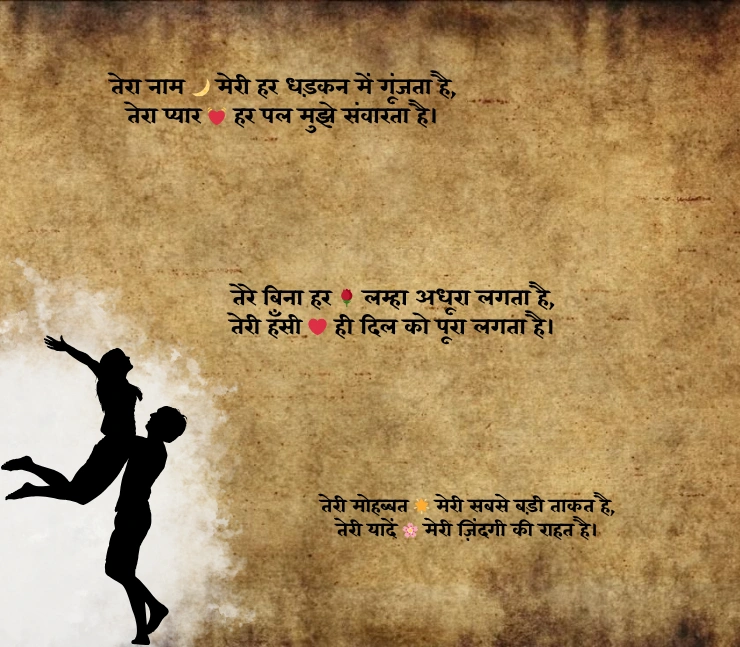 तेरा नाम 🌙 मेरी हर धड़कन में गूंजता है,
तेरा प्यार ❤️ हर पल मुझे संवारता है।
तेरे बिना हर 🌹 लम्हा अधूरा लगता है,
तेरी हँसी ❤️ ही दिल को पूरा लगता है।
तेरी मोहब्बत ☀️ मेरी सबसे बड़ी ताकत है,
तेरी यादें 🌸 मेरी ज़िंदगी की राहत है।